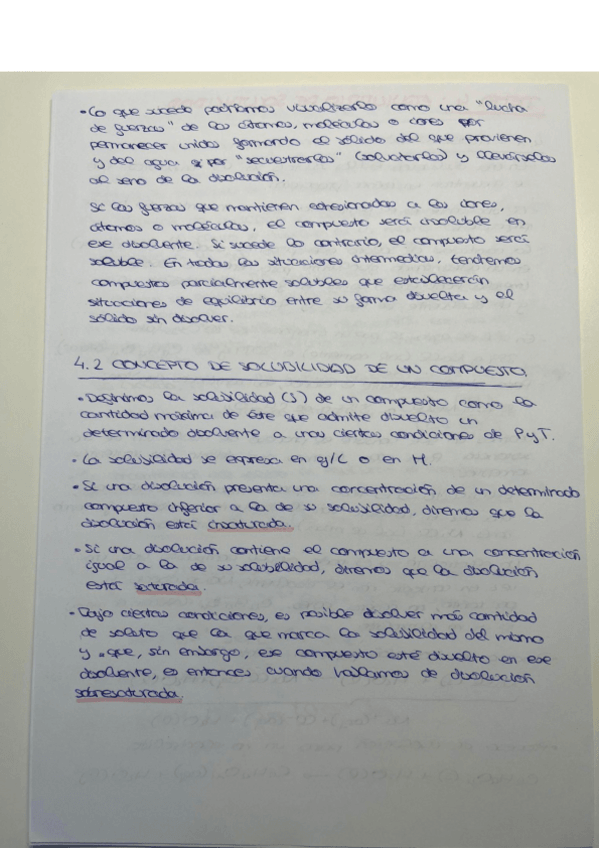 • Lo que sucede podríamos visualizarlo como una "lucha
de fuerzas" de los átomos, moléculas o iones por
permanecer unidos formando el sólido del que provienen
y del agua por "secuestrarlos" (solvatarlos) y llevárselos
al seno de la disolución.
Si las fuerzas que mantienen cohesionados a los iones,
átomos o moléculas, el compuesto será insoluble en
ese disolvente. Si sucede lo contrario, el compuesto será
soluble. En todas las situaciones intermedias, tendremos
compuestos parcialmente solubles que establecerán
situaciones de equilibrio entre su forma disuelta y el
sólido sin disolver.
4.2 CONCEPTO DE SOLUBILIDAD DE UN COMPUESTO.
• Definimos la solubilidad (S) de un compuesto como la
cantidad máxima de éste que admite disuelto un
determinado disolvente a unas ciertas condiciones de P y T.
• La solubilidad se expresa en g/L o en M.
• Si una disolución presenta una concentración de un determinado
compuesto inferior a la de su solubilidad, diremos que la
disolución está insaturada.
• Si una disolución contiene el compuesto a una concentración
igual a la de su solubilidad, diremos que la disolución
está saturada.
• Bajo ciertas condiciones, es posible disolver más cantidad
de soluto que la que marca la solubilidad del mismo
y que, sin embargo, ese compuesto esté disuelto en ese
disolvente, es entonces cuando hablamos de disolución
sobresaturada.